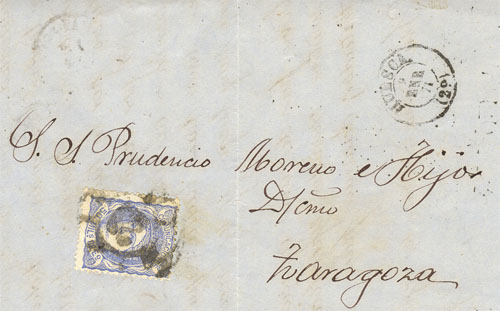 HUESCA
ENE
71
(29)
S. S. Prudencio Moreno e Hijos
D/cmo
Zaragoza